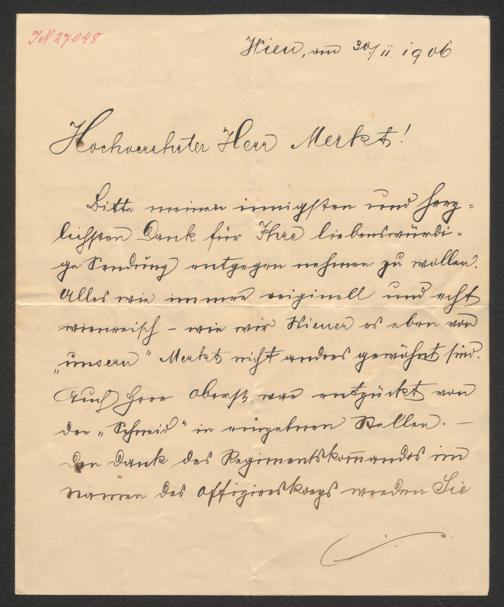 IN 27048
Wien, am 30/II 1906
Hochverehrter Herr Merkt!
Bitte meinen innigsten und herz-
lichsten Dank für Ihre liebenswürdi-
ge Sendung entgegen nehmen zu wollen.
Alles wie immer originell und echt
wienerisch – wie wir Wiener es eben von
„unsern" Merkt nicht anders gewöhnt sind.
Auch Herr Oberst war entzückt von
der „Schneid" in einzelnen Stellen. –
Den Dank des Regimentskom̄andos im
Namen des Offizierskorps werden Sie